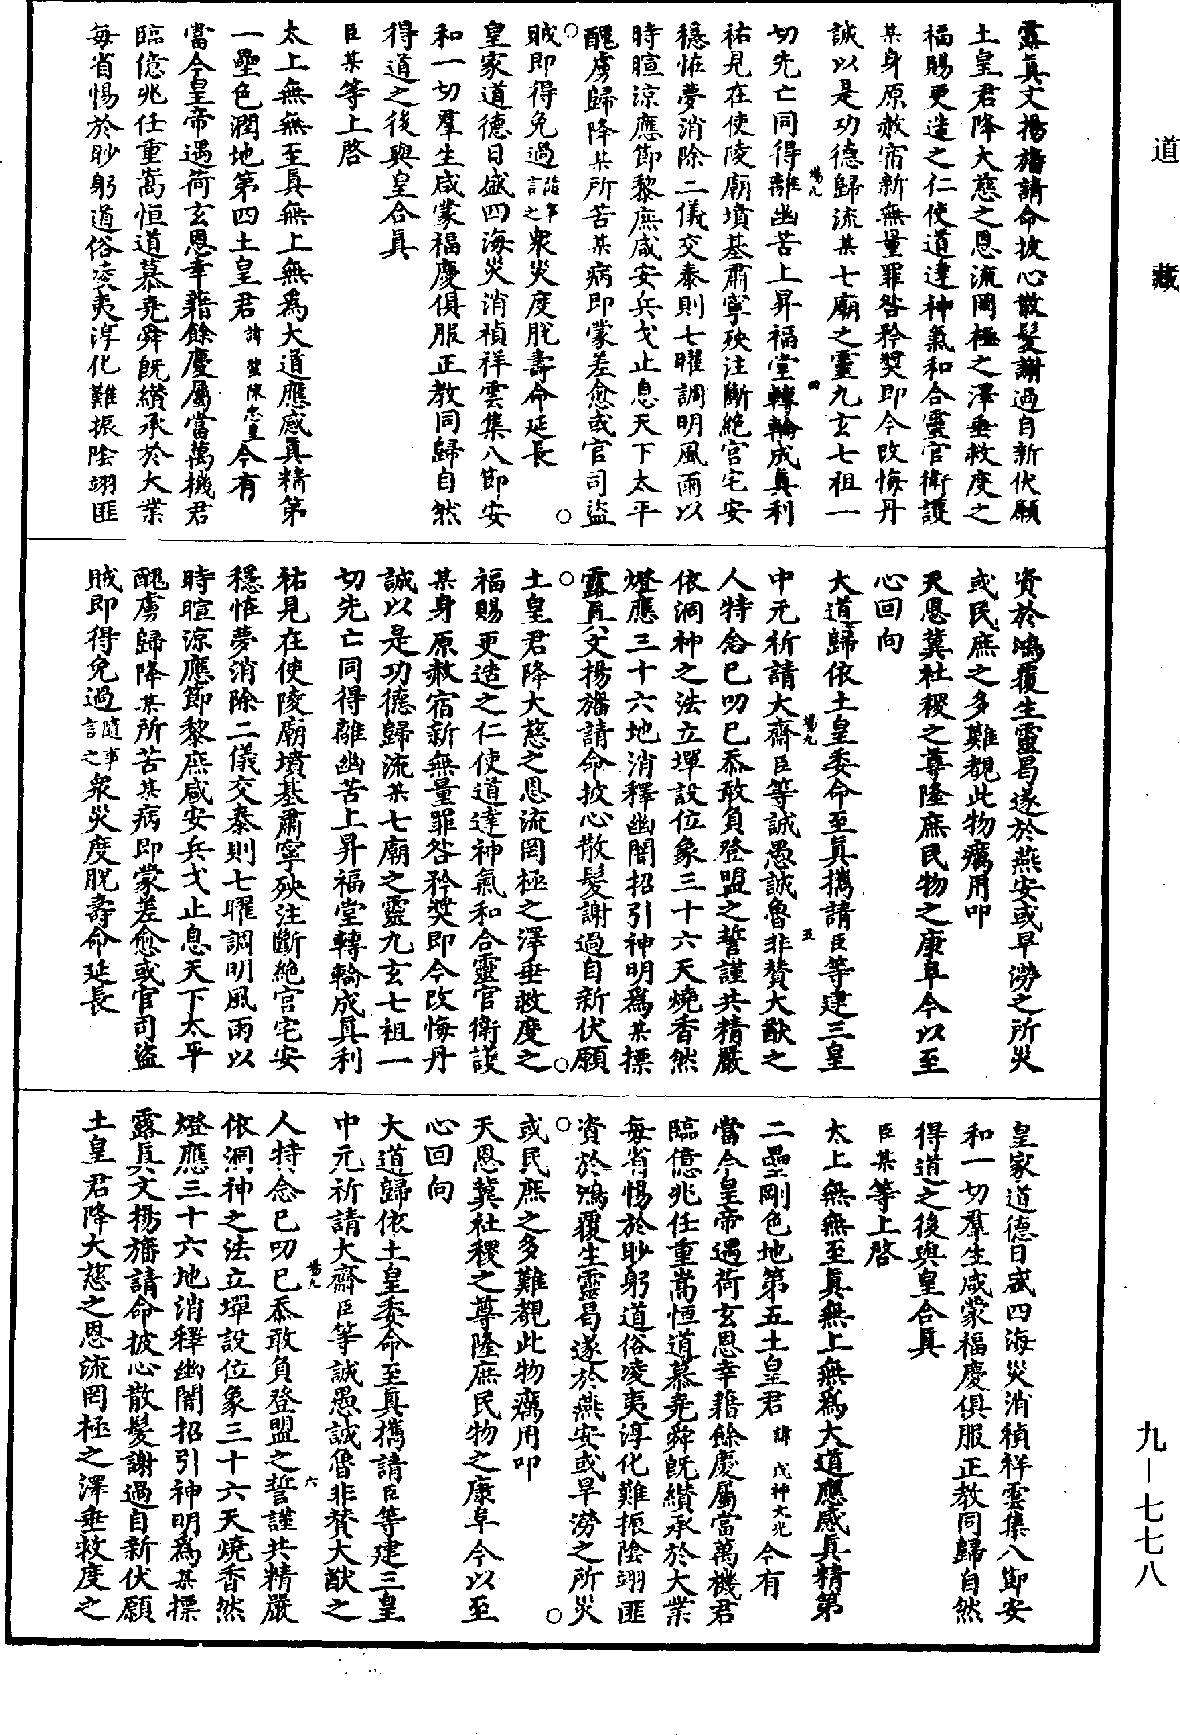 道藏
露真文揚旛請命披心散髮謝過自新伏願
土皇君降大慈之恩流罔極之澤垂救度之
福賜更造之仁使道達神氣和合靈官衛護
某身原赦宿新無量罪咎矜獎即今改悔丹
誠以是功德歸流某七廟之靈九玄七祖一
切先亡同得離幽苦上昇福堂轉輪成真利
祐見在使陵廟墳基肅寧殃注斷絕宮宅安
穩恠夢消除二儀交泰則七曜調明風雨以
時暄涼應節黎庶咸安兵戈止息天下太平
醜虜歸降某所苦某病即蒙差愈或官司盜
賊即得免過隨事言之衆災度脫壽命延長
皇家道德日盛四海災消禎祥雲集八節安
和一切羣生咸蒙福慶俱服正教同歸自然
得道之後與皇合真
臣某等上啓
太上無無至真無上無爲大道應感真精第
一壘色潤地第四土皇君諱陳志皇今有
當今皇帝遇荷玄恩幸藉餘慶屬當萬機君
臨億兆任重嵩恒道慕堯舜旣纘承於大業
每省惕於眇躬道俗凌夷淳化難振陰翊匪
資於鴻覆生靈曷遂於燕安或旱澇之所災
或民庶之多難覩此物癘用叩
天恩冀社稷之尊隆庶民物之康阜今以至
心回向
大道歸依土皇委命至真擕請臣等建三皇
中元祈請大齋臣等誠愚誠魯非賛大猷之
人特念已叨已忝敢負登盟之誓謹共精嚴
依洞神之法立墠設位象三十六天燒香然
燈應三十六地消釋幽闇招引神明爲某摽
露真文揚旛請命披心散髮謝過自新伏願
土皇君降大慈之恩流罔極之澤垂救度之
福賜更造之仁使道達神氣和合靈官衛護
某身原赦宿新無量罪咎矜獎即今改悔丹
誠以是功德歸流某七廟之靈九玄七祖一
切先亡同得離幽苦上昇福堂轉輪成真利
祐見在使陵廟墳基肅寧殃注斷絕宮宅安
穩恠夢消除二儀交泰則七曜調明風雨以
時暄涼應節黎庶咸安兵戈止息天下太平
醜虜歸降某所苦某病即蒙差愈或官司盜
賊即得免過隨事言之衆災度脫壽命延長
皇家道德日盛四海災消禎祥雲集八節安
和一切羣生咸蒙福慶俱服正教同歸自然
得道之後與皇合真
臣某等上啓
太上無無至真無上無爲大道應感真精第
二壘剛色地第五土皇君諱戊神文光今有
當今皇帝遇荷玄恩幸藉餘慶屬當萬機君
臨億兆任重嵩恒道慕堯舜旣纘承於大業
每省惕於眇躬道俗凌夷淳化難振陰翊匪
資於鴻覆生靈曷遂於燕安或旱澇之所災
或民庶之多難覩此物癘用叩
天恩冀社稷之尊隆庶民物之康阜今以至
心回向
大道歸依土皇委命至真擕請臣等建三皇
中元祈請大齋臣等誠愚誠魯非賛大猷之
人特念已叨已忝敢負登盟之誓謹共精嚴
依洞神之法立墠設位象三十六天燒香然
燈應三十六地消釋幽闇招引神明爲某摽
露真文揚旛請命披心散髮謝過自新伏願
土皇君降大慈之恩流罔極之澤垂救度之
九—七七八